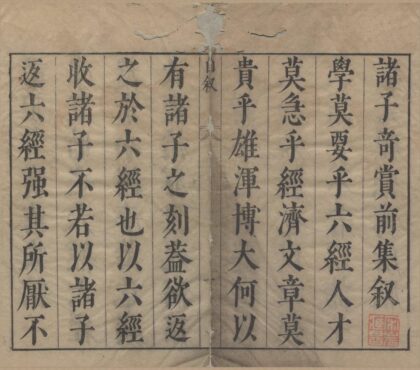 諸子竒賞前集叙
學莫要乎六經人才
莫急乎經濟文章莫
貴乎雄渾博大何以
自叙
有諸子之刻葢欲返
之於六經也以六經
收諸子不若以諸子
返六經强其所厭不